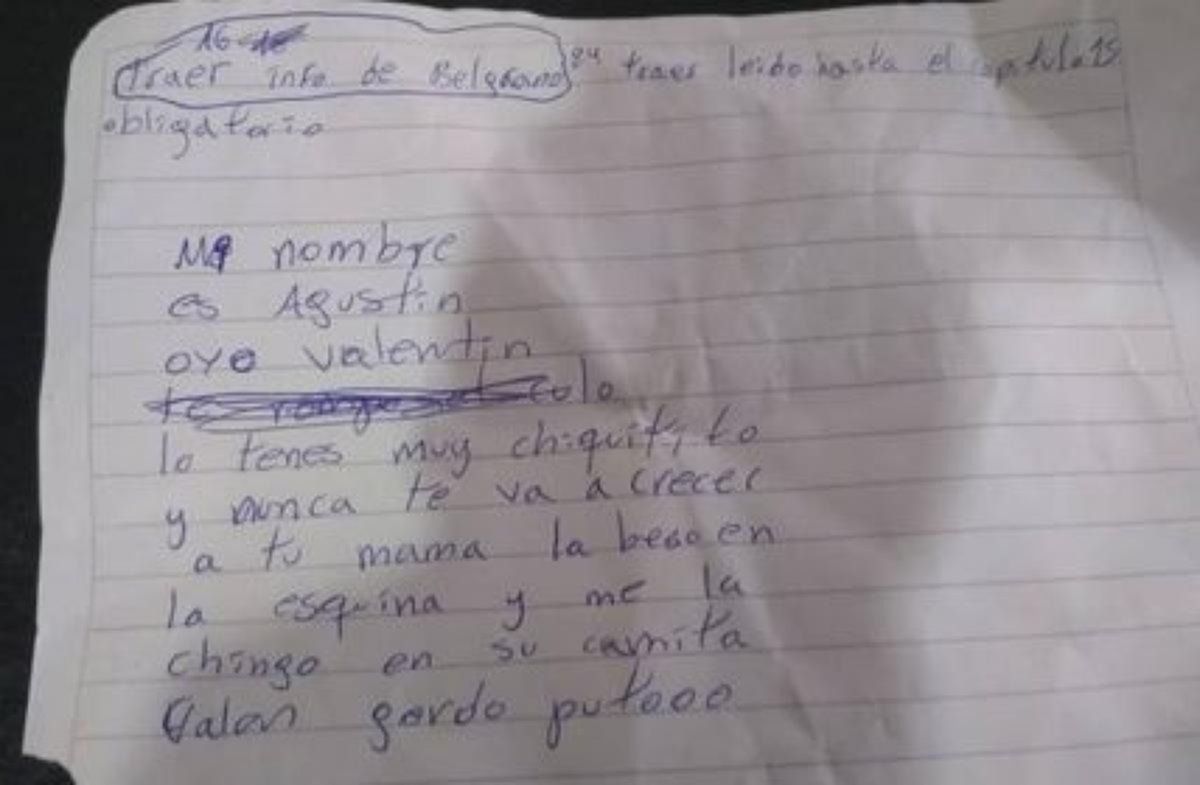 16
traer info de Belgrano 84 traer leido hasta el capitulo 15
obligatorio
Mi nombre
es Agustin
oye valentin
colo
lo tenes muy chiquitito
y nunca te va a crecer
a tu mama la beso en
la esquina y me la
chingo en su camita
Valen gordo putooo